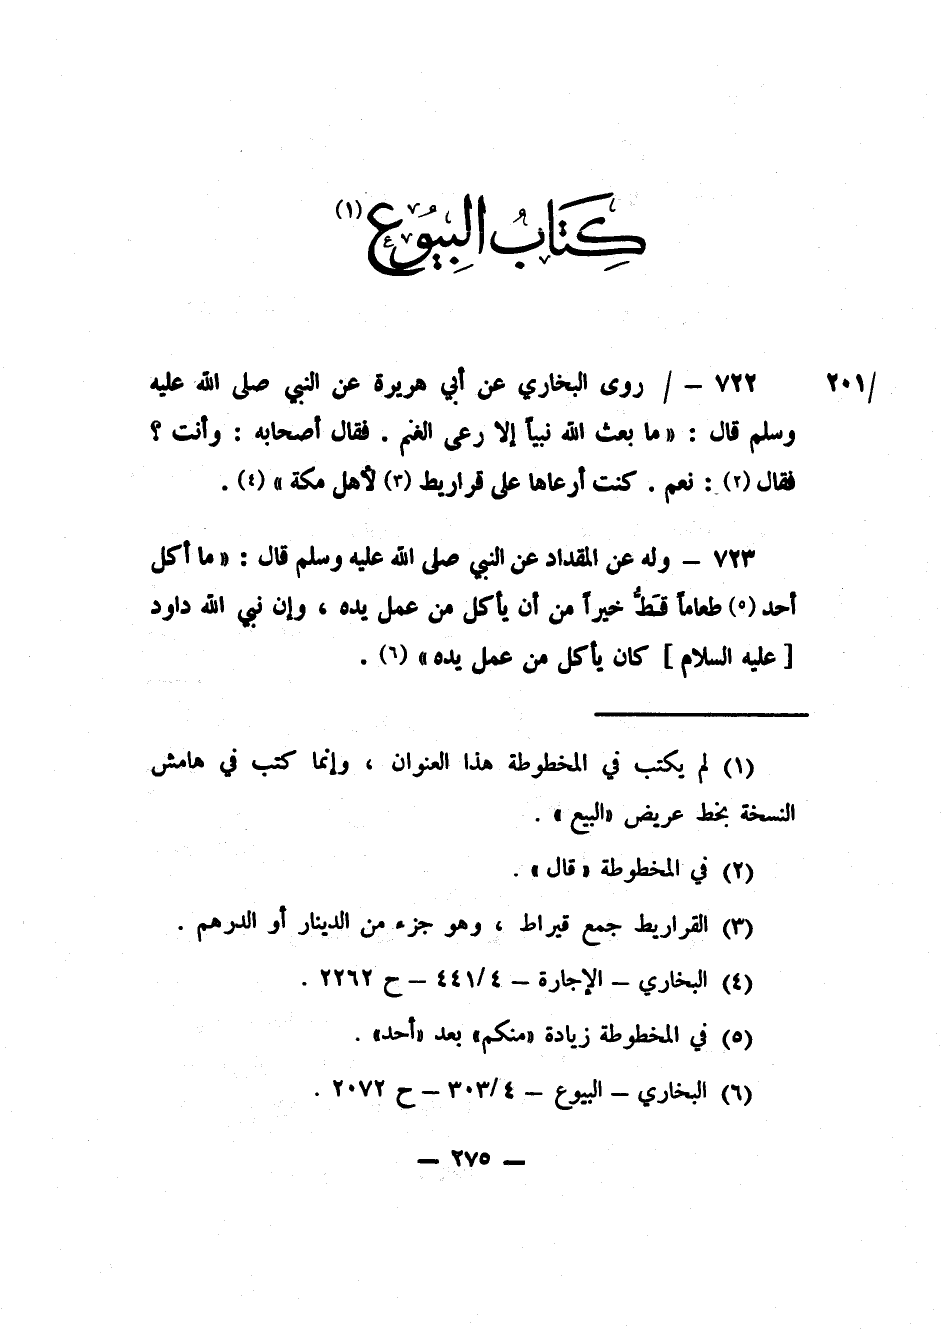 كِتَابُ البُيُوع (١)
/٢٠١ ٧٢٢ – / روى البخاري عن أبي هريرة عن النبي صلى الله عليه
وسلم قال : « ما بعث الله نبياً إلا رعى الغنم . فقال أصحابه : وأنت ؟
فقال (٢) : نعم . كنت أرعاها على قراريط (٣) لأهل مكة » (٤) .
٧٢٣ – وله عن المقداد عن النبي صلى الله عليه وسلم قال : « ما أكل
أحد (٥) طعاماً قَطُّ خيراً من أن يأكل من عمل يده ، وإن نبي الله داود
[ عليه السلام ] كان يأكل من عمل يده » (٦) .
(١) لم يكتب في المخطوطة هذا العنوان ، وإنما كتب في هامش
النسخة بخط عريض «البيع » .
(٢) في المخطوطة « قال » .
(٣) القراريط جمع قيراط ، وهو جزء من الدينار أو الدرهم .
(٤) البخاري – الإجارة – ٤/٤٤١ – ح ٢٢٦٢ .
(٥) في المخطوطة زيادة «منكم» بعد «أحد» .
(٦) البخاري – البيوع – ٤/٣٠٣ – ح ٢٠٧٢ .
– ٢٧٥ –